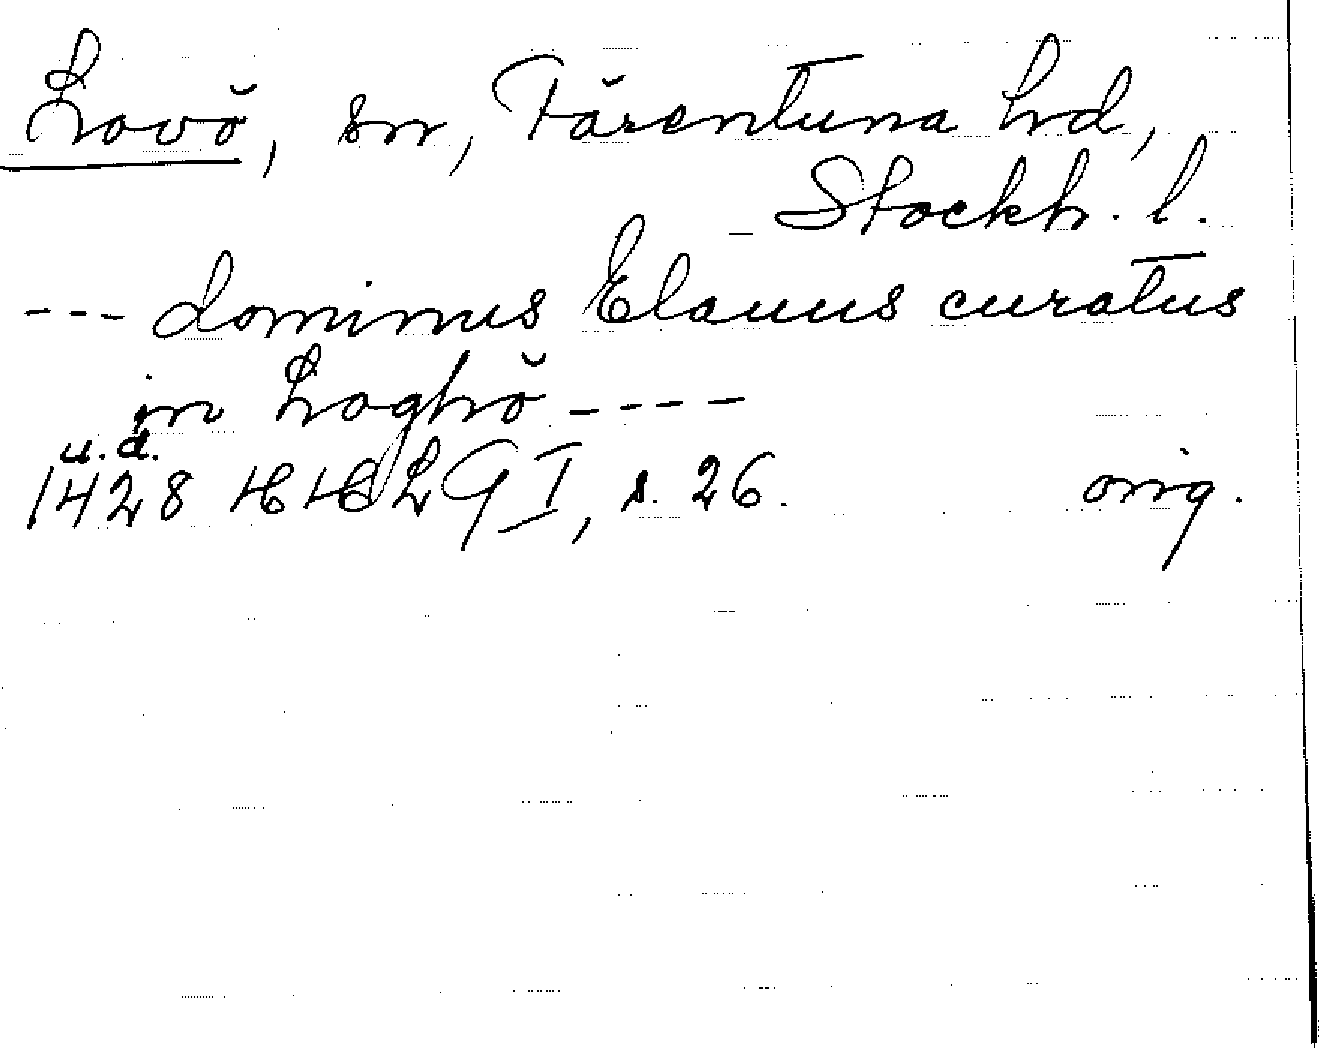 Lovö, sn, Färentuna hrd,
Stockh. l.
--- dominus Elauus curatus
in Loghö ----
u. d.
1428 HHLG I, s. 26. orig.